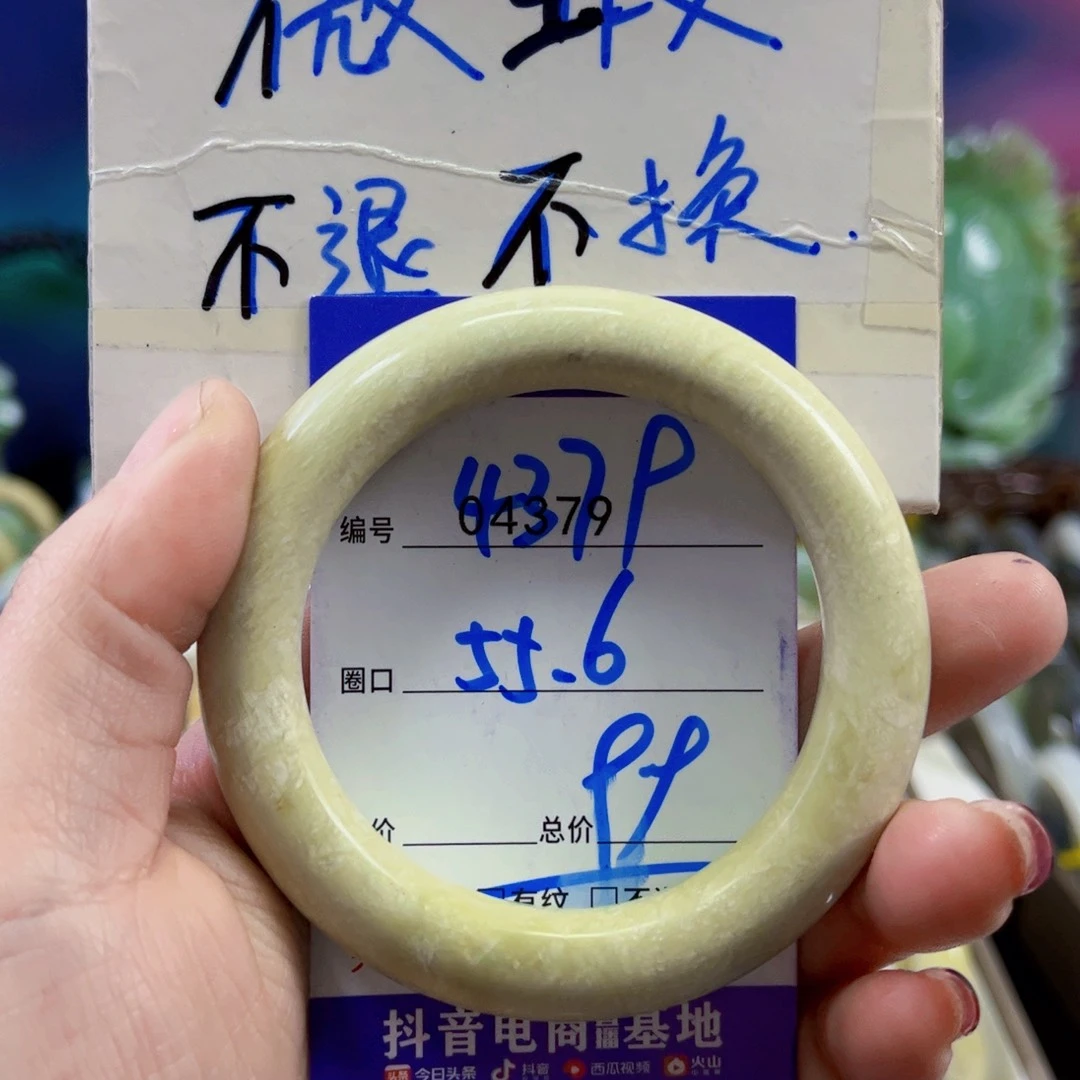 微瑕
不退不换..
4379
编号 04379
圈口 55.6
99
价 总价
有纹 不
抖音电商直播基地
头条 今日头条 抖音 西瓜视频 火山